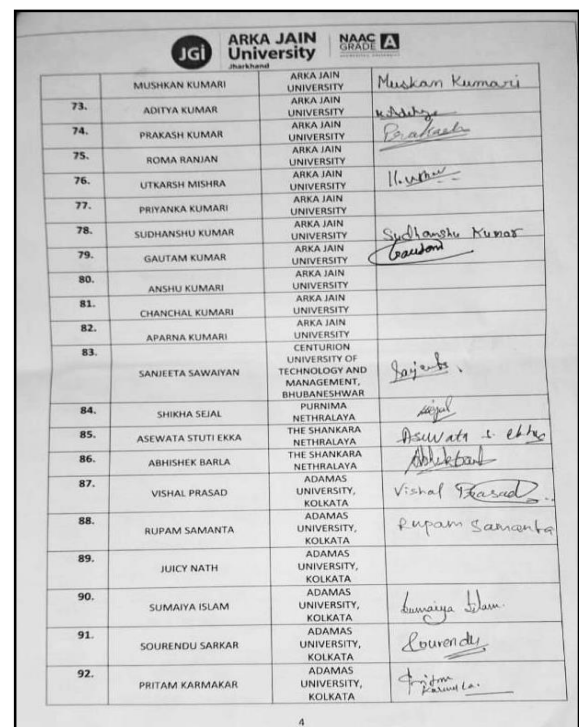 JGi ARKA JAIN University Jharkhand NAAC GRADE A
MUSHKAN KUMARI ARKA JAIN UNIVERSITY Muskan Kumari
73. ADITYA KUMAR ARKA JAIN UNIVERSITY
74. PRAKASH KUMAR ARKA JAIN UNIVERSITY Prakash
75. ROMA RANJAN ARKA JAIN UNIVERSITY
76. UTKARSH MISHRA ARKA JAIN UNIVERSITY
77. PRIYANKA KUMARI ARKA JAIN UNIVERSITY
78. SUDHANSHU KUMAR ARKA JAIN UNIVERSITY Sudhanshu Kumar
79. GAUTAM KUMAR ARKA JAIN UNIVERSITY Gautam
80. ANSHU KUMARI ARKA JAIN UNIVERSITY
81. CHANCHAL KUMARI ARKA JAIN UNIVERSITY
82. APARNA KUMARI ARKA JAIN UNIVERSITY
83. SANJEETA SAWAIYAN CENTURION UNIVERSITY OF TECHNOLOGY AND MANAGEMENT, BHUBANESHWAR
84. SHIKHA SEJAL PURNIMA NETHRALAYA Sejal
85. ASEWATA STUTI EKKA THE SHANKARA NETHRALAYA
86. ABHISHEK BARLA THE SHANKARA NETHRALAYA
87. VISHAL PRASAD ADAMAS UNIVERSITY, KOLKATA Vishal Prasad
88. RUPAM SAMANTA ADAMAS UNIVERSITY, KOLKATA Rupam Samanta
89. JUICY NATH ADAMAS UNIVERSITY, KOLKATA
90. SUMAIYA ISLAM ADAMAS UNIVERSITY, KOLKATA Sumaiya Islam.
91. SOURENDU SARKAR ADAMAS UNIVERSITY, KOLKATA Sourendu
92. PRITAM KARMAKAR ADAMAS UNIVERSITY, KOLKATA Pritam
4